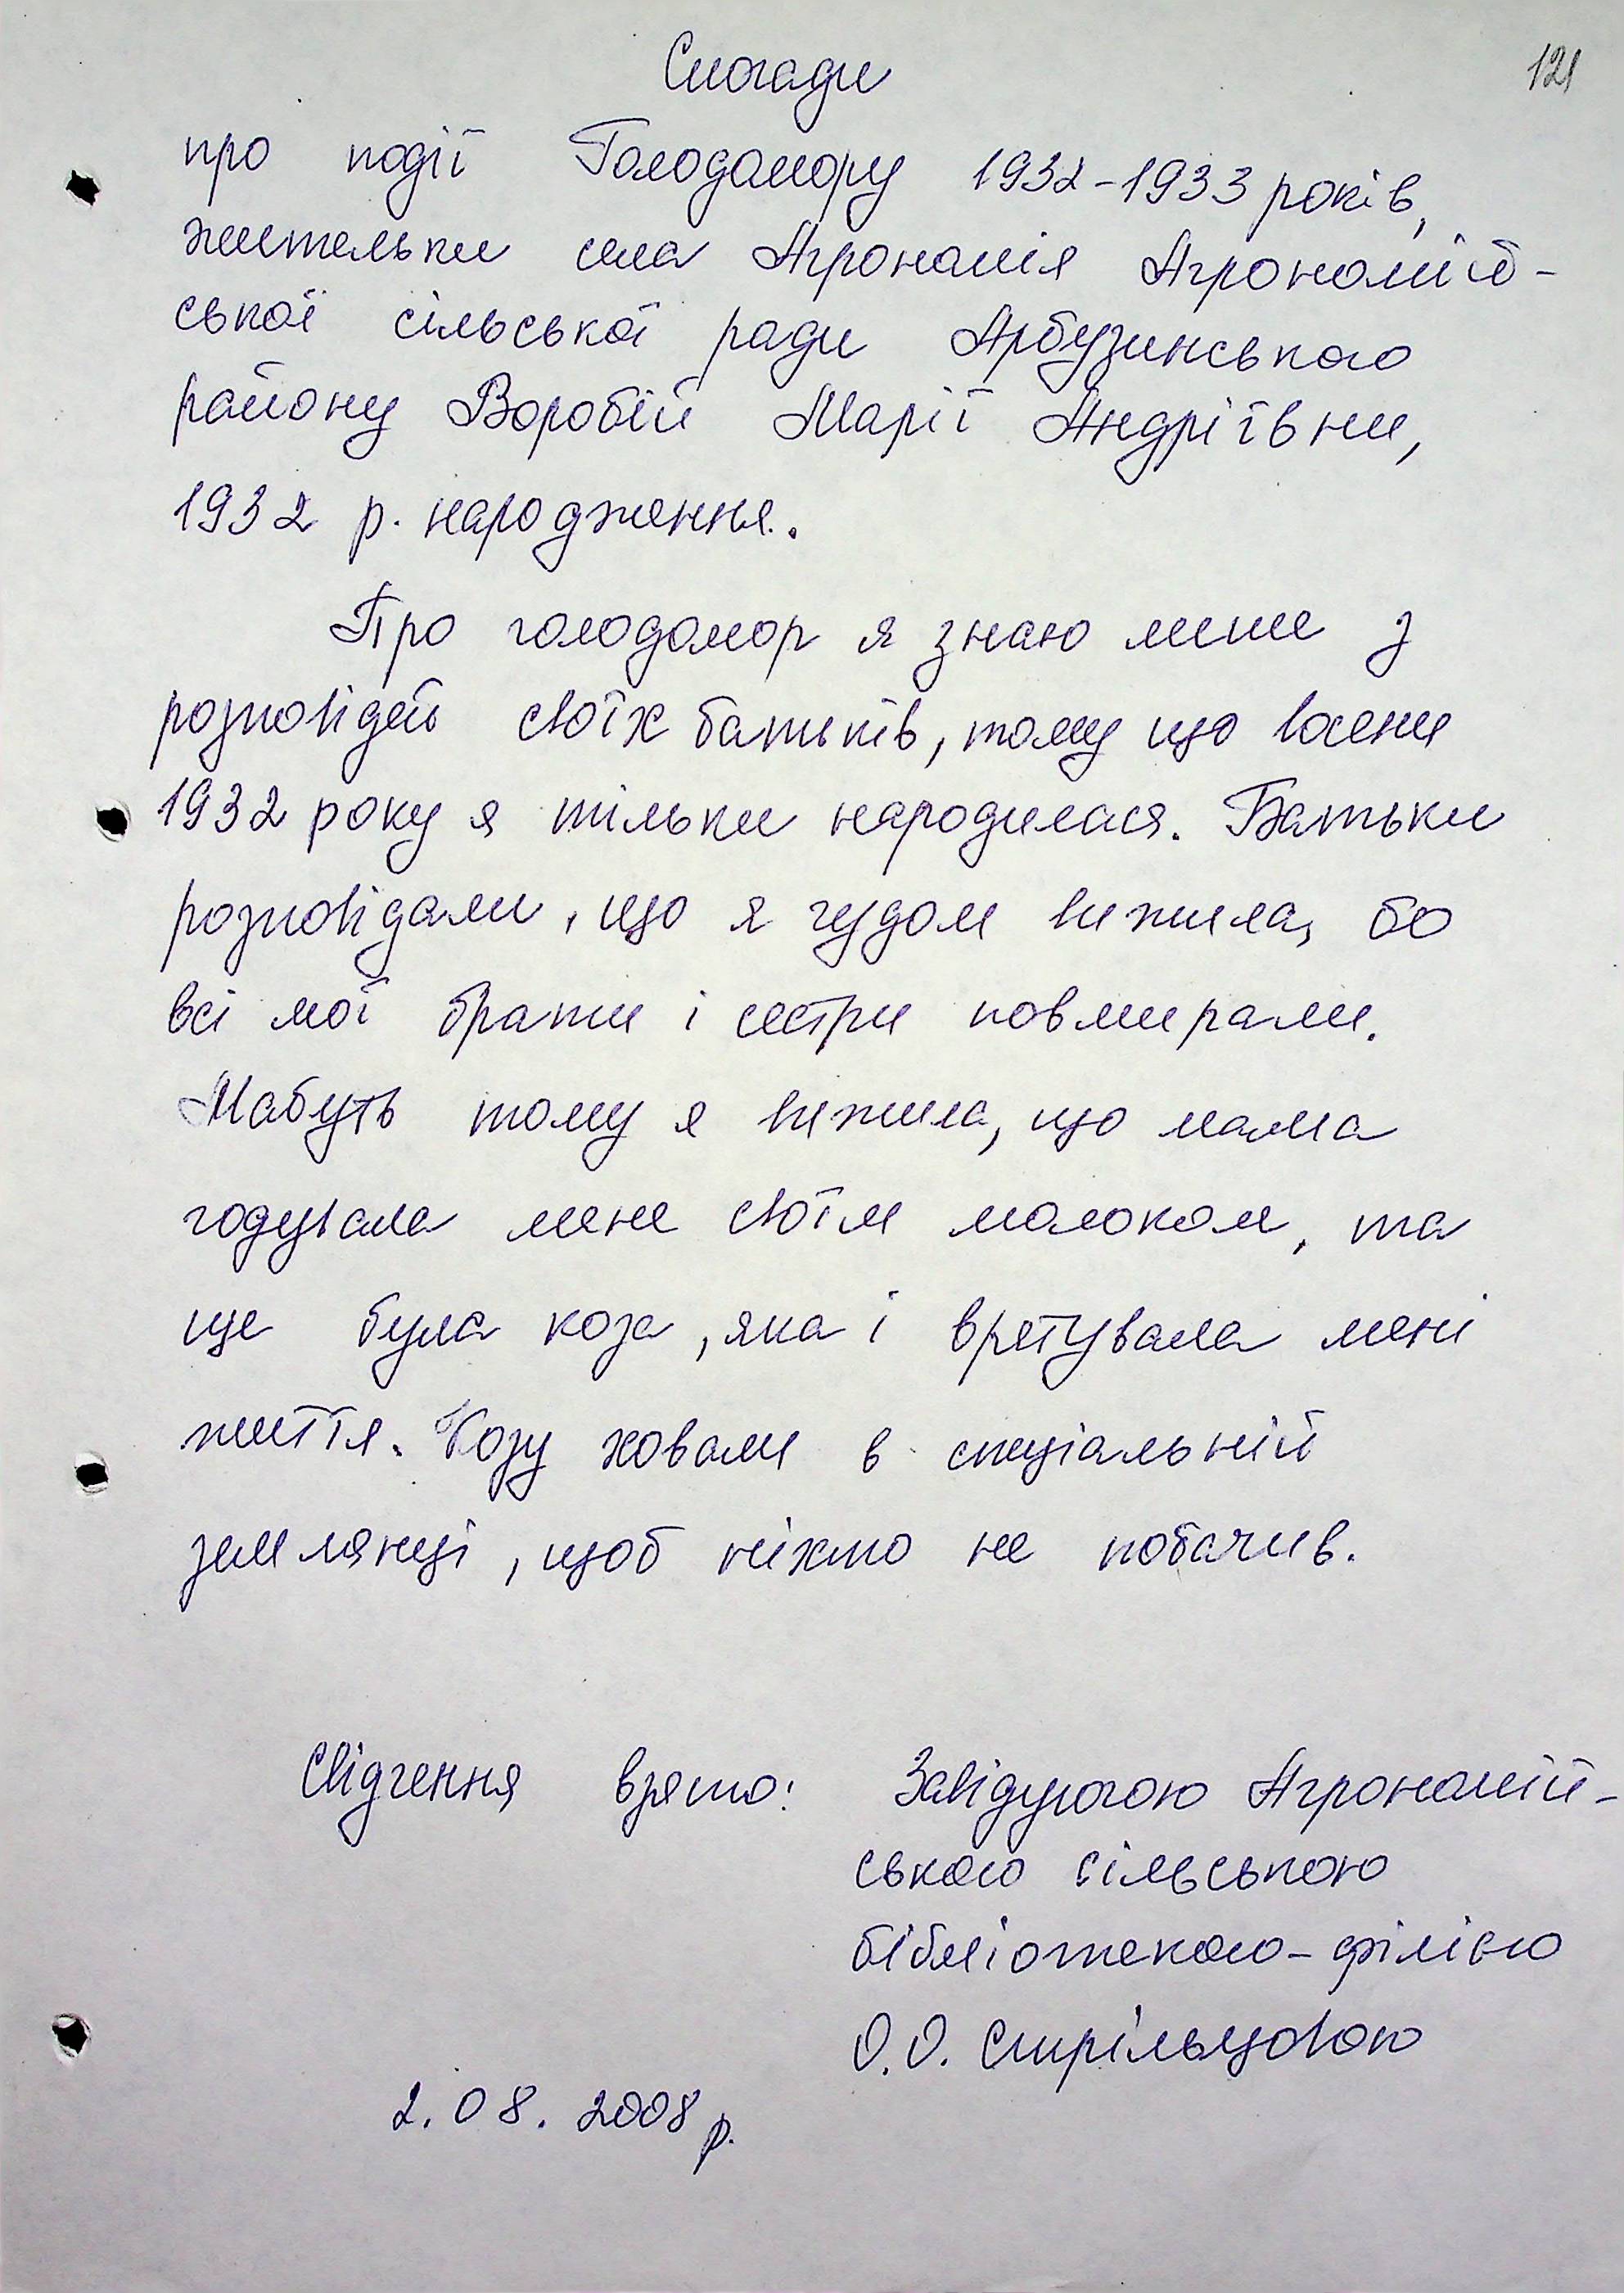 Спогади
121
про події Голодомору 1932-1933 років,
жительки села Агрономія Агрономій-
ської сільської ради Арбузинського
району Воробій Марії Андріївни,
1932 р. народження.
Про голодомор я знаю лише з
розповідей своїх батьків, тому що восени
1932 року я тільки народилася. Батьки
розповідали, що я чудом вижила, бо
всі мої брати і сестри повмирали.
Мабуть тому я вижила, що мама
годувала мене своїм молоком, та
ще була коза, яка і врятувала мені
життя. Козу ховали в спеціальній
землянці, щоб ніхто не побачив.
Свідчення взято: Завідуючою Агрономій-
ською сільською
бібліотекою-філією
О.О. Стрільцовою
2.08.2008 р.